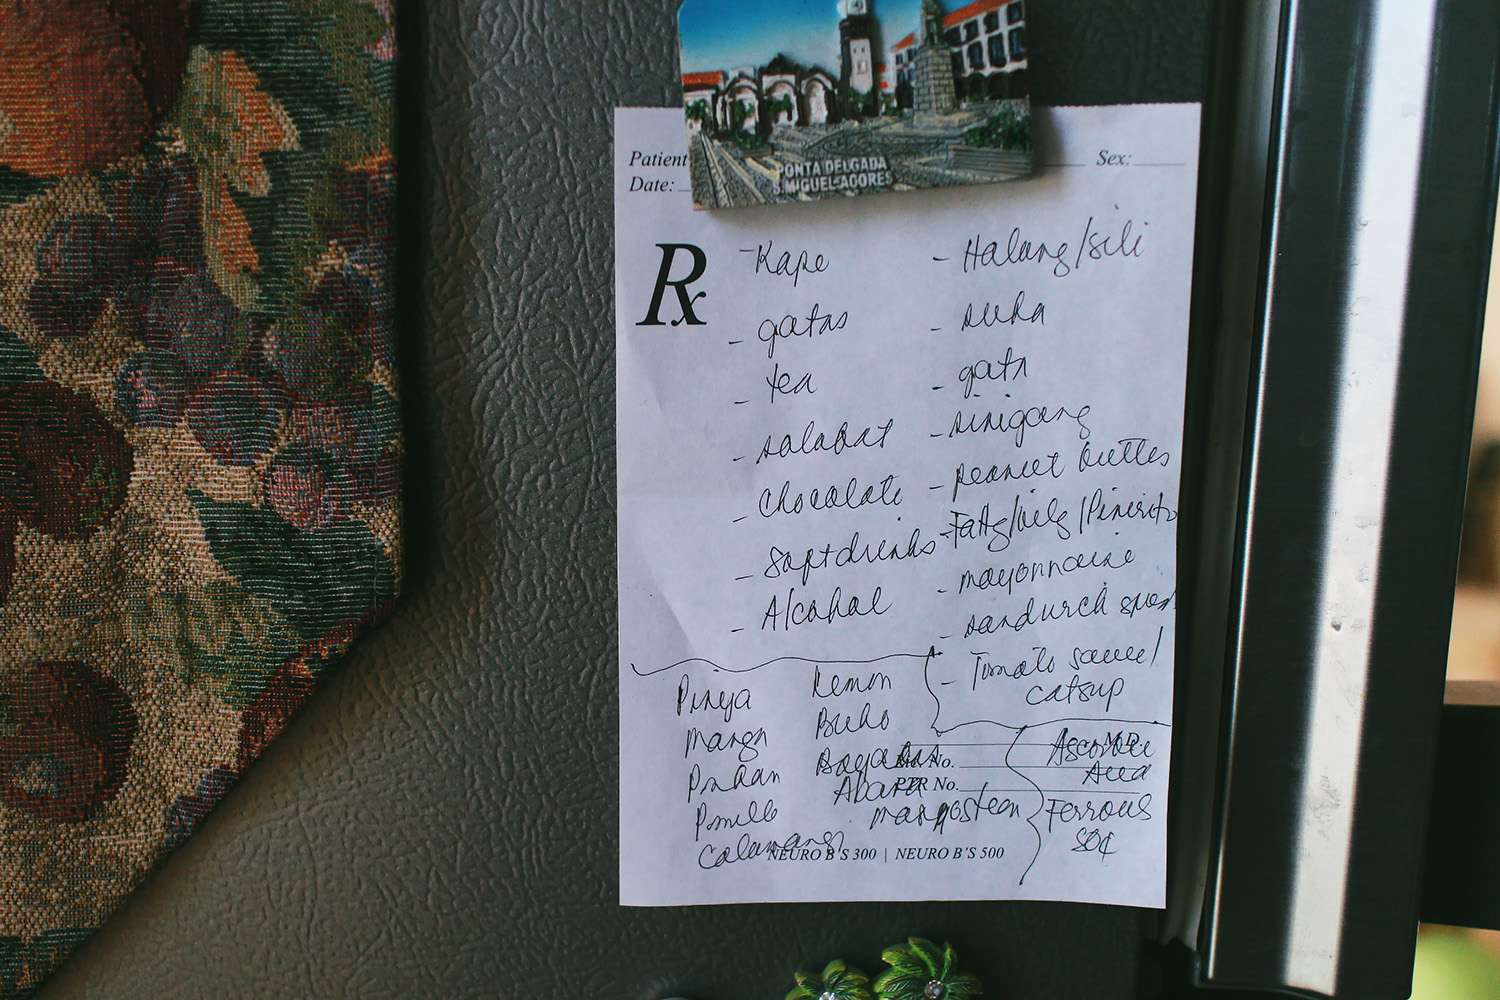 PONTA DELGADA
S. MIGUEL-AÇORES
Patient
Date:
Sex:
Rx
- Kape
- gatas
- tea
- salabat
- Chocolate
- Softdrinks
- Alcohol
- Halang/sili
- suka
- gata
- sinigang
- peanut butter
- Fatty/oily/Pinirito
- mayonnaise
- sandwich spread
- Tomato sauce/
catsup
Pinya
Mango
Ponkan
Pomelo
Calamansi
Lemon
Buko
Bayabas
Abana
mangosteen
M.D.
No.
PTR No.
Ascorbic
Acid
Ferrous
SO4
NEURO B'S 300 | NEURO B'S 500